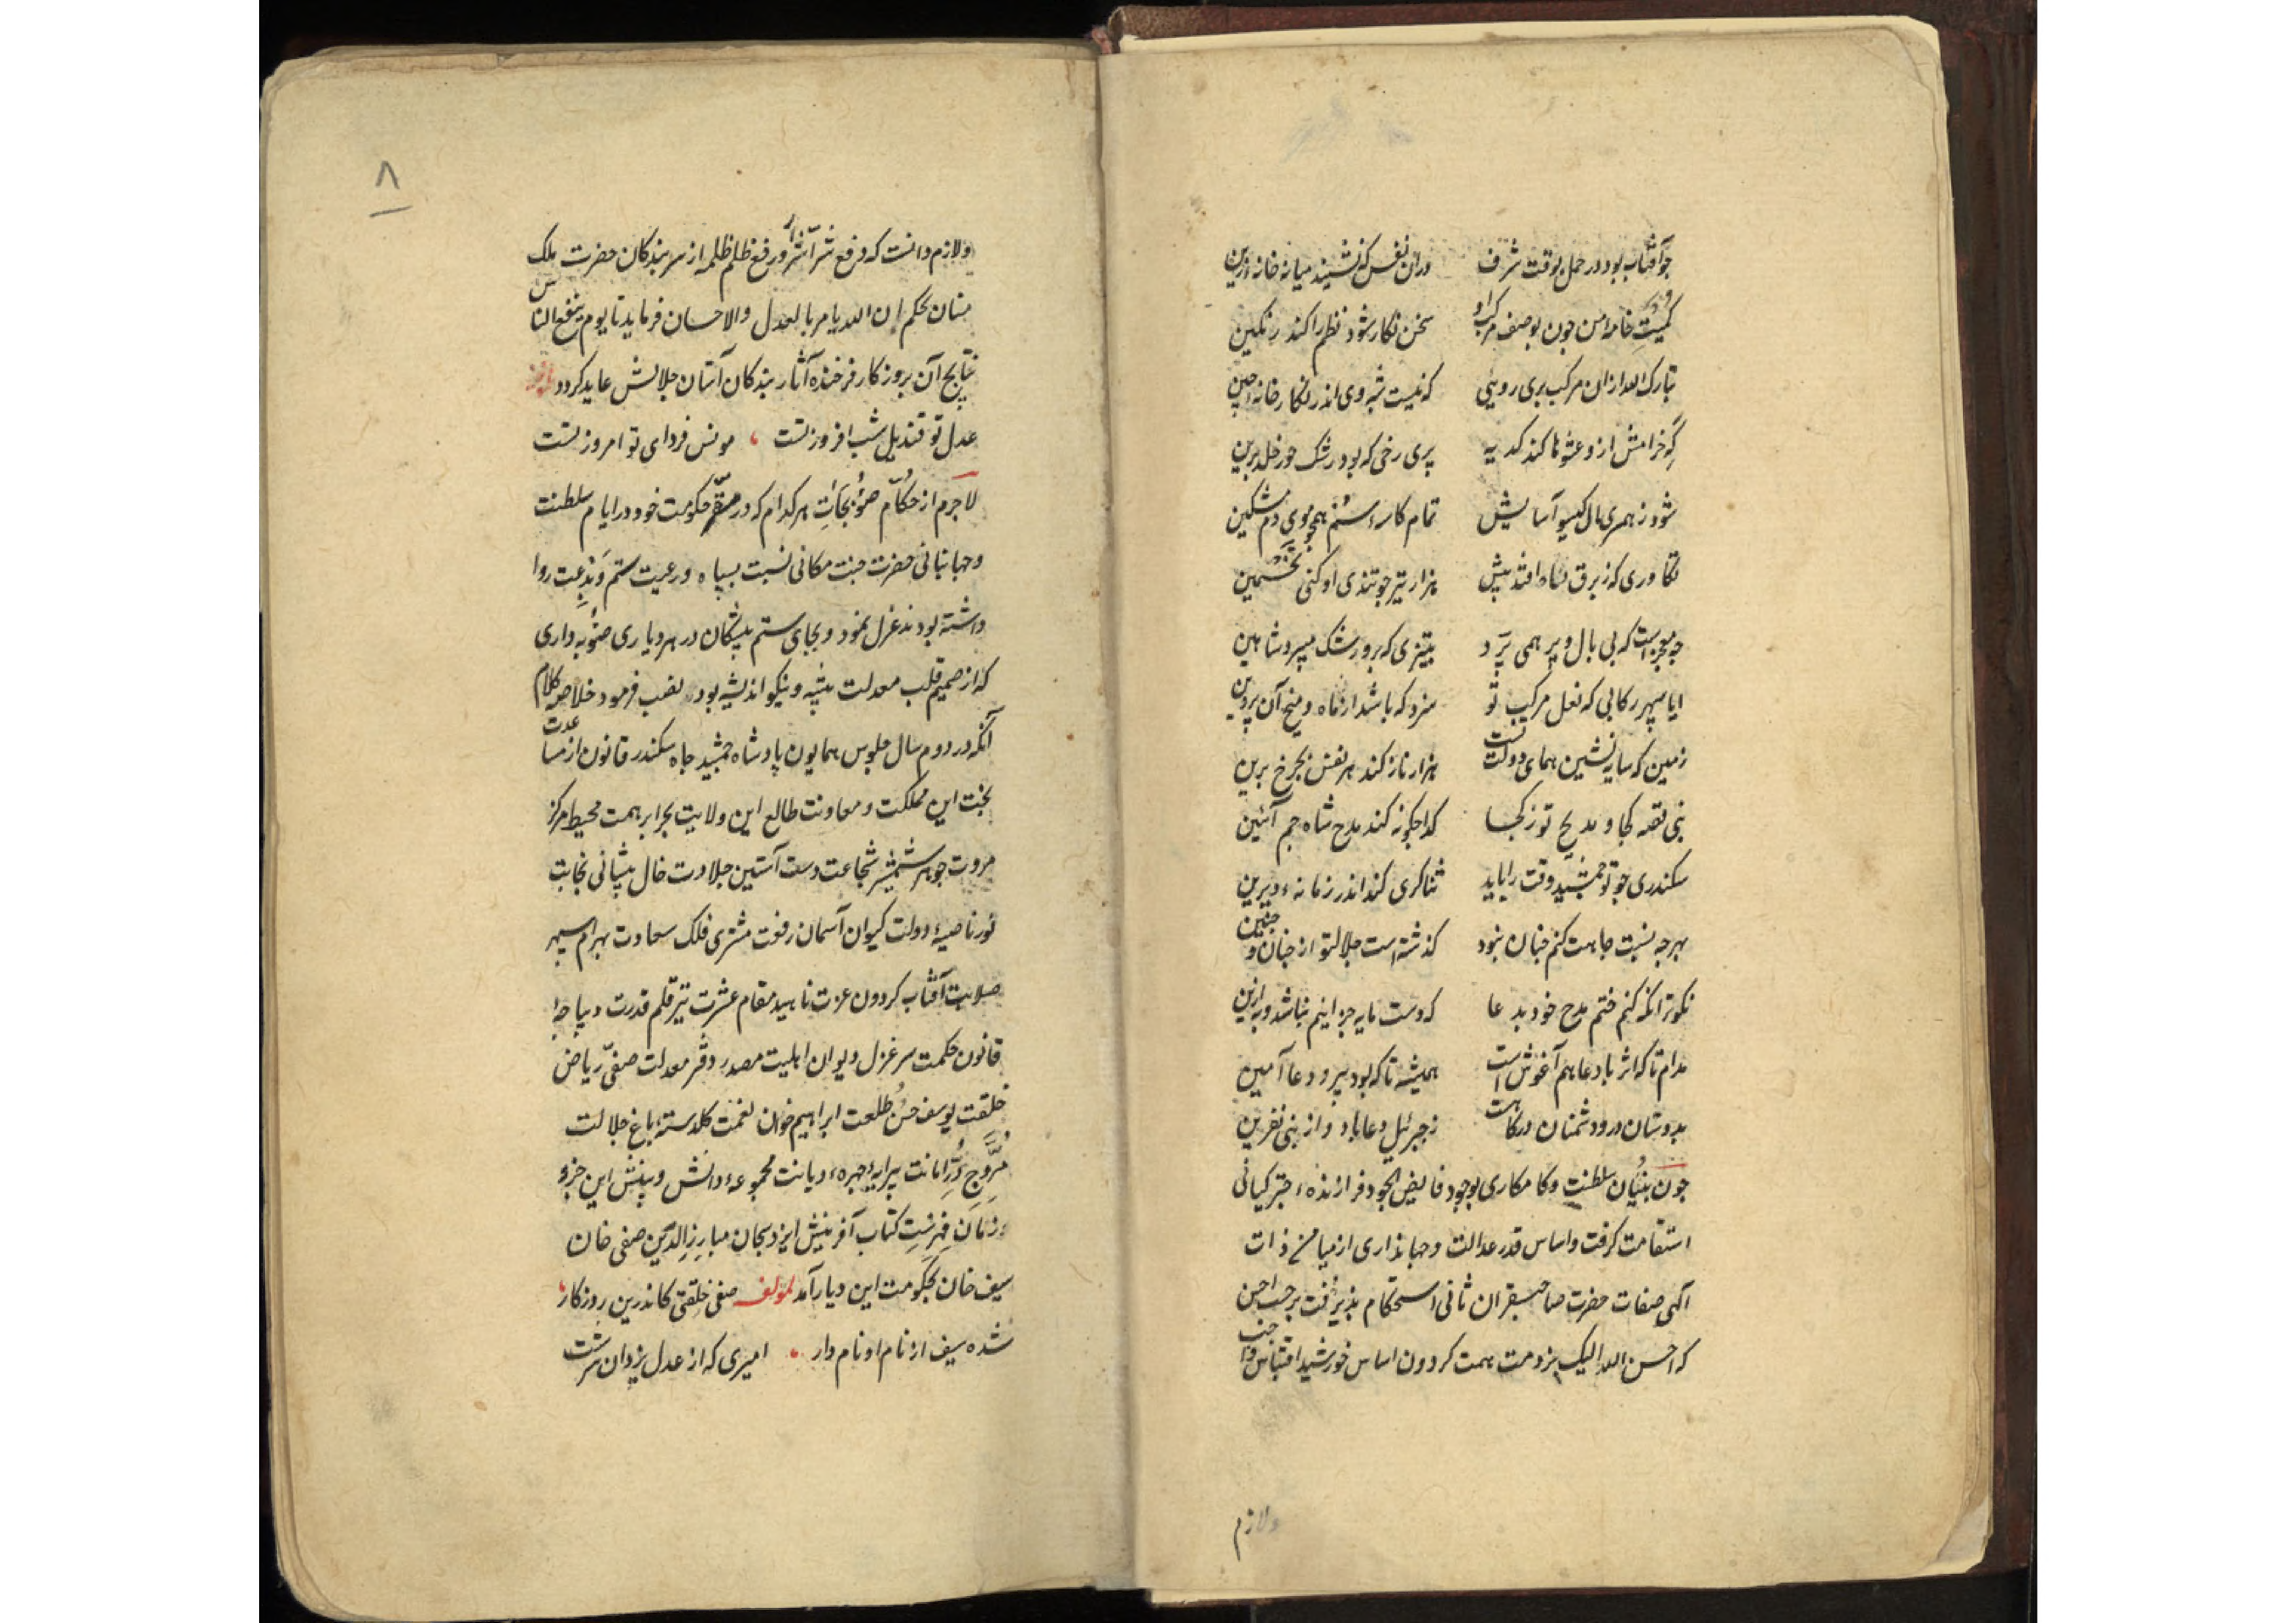 چو آفتاب بود در حمل بوقت شرف دران نفس که نشیند میانهٔ خانهٔ زین
کمیت خامهٔ من چون بوصف مرکب او سخن نکار شود نظم را کند رنکین
تبارک الله ازان مرکب پری رویی که نیست شبه وی اندر نکارخانهٔ چین
که خرامش ازو عشوها کند کدیه پری رخی که بود رشک حور خلد برین
شود ز همسری یال کیسو آسایش تمام کاسهٔ سم همچو موی دم مشکین
تکاوری که ز برق نکاه افتد پیش هزار تیر چو تندی او کنی تخمین
چه معجز است که بی بال و پر همی پرد بتیزی که برو رشک میبرد شاهین
ایا سپهر رکابی که نعل مرکب تو سزد که باشد از ماه و میخ آن پروین
زمین که سایه نشین همای دولت تست هزار ناز کند هر نفس بچرخ برین
بنی تقه کجا و مدیح تو ز کجا کدا چکونه کند مدح شاه جم آئین
سکندری چو تو جمشید وقت را باید ثناکری کند اندر زمانهٔ دیرین
بهرچه نسبت جاهت کنم چنان نبود کذشته است جلالتو از چنان و چنین
نکوتر انکه کنم ختم مدح خود بدعا که دست مایه جز اینم نباشد و به ازین
مدام تا که اثر با دعا هم آغوش است همیشه تا که بود پیرو دعا آمین
بدوستان درود شمنان درکاهت ز جبرئیل دعا باد و از بنی نفرین
چون بنیان سلطنت و کامکاری بوجود فایض الجود فرازندهٔ چتر کیانی
استقامت کرفت و اساس قدر عدالت و جهانداری از میامن ذات
آکهی صفات حضرت صاحبقران ثانی استحکام پذیرفت بر حسب احسن
که احسن الله الیک بر ذمت همت کردون اساس خورشید اقتباس واجب
ولازم
۸
ولازم دانست که دفع شر اشرار و رفع ظلم ظلمه از سر بندکان حضرت ملک
منان بحکم ان الله یامر بالعدل والاحسان فرماید تا یوم ینفع الناس
نتایج آن بروزکار فرخنده آثار بندکان آستان جلالش عاید کردد
عدل تو قندیل شب افروز تست مونس فردای تو امروز تست
لاجرم از حکام صوبجات هر کدام که در مقر حکومت خود در ایام سلطنت
و جهانبانی حضرت جنت مکانی نسبت بسپاه و رعیت ستم و بدعت روا
داشته بودند عزل نمود و بجای ستم پیشکان در هر دیاری صوبه داری
که از صمیم قلب معدلت پیشه و نیکو اندیشه بود نصب فرمود خلاصه کلام
آنکه در دوم سال جلوس همایون پادشاه جمشید جاه سکندر قانون از مساعدت
بخت این مملکت و معاونت طالع این ولایت بحر ابر همت محیط مرکز
مروت جوهر شمشیر شجاعت دست آستین جلادت خال پیشانی نجابت
نور ناصیهٔ دولت کیوان آسمان رفعت مشتری فلک سعادت بهرام سپهر
صلابت آفتاب کردون عزت ناهید مقام عشرت تیر قلم قدرت دیباجهٔ
قانون حکمت سر غزل دیوان اهلیت مصدر دفتر معدلت صفی ریاض
خلقت یوسف حسن طلعت ابراهیم خوان نعمت کلدستهٔ باغ جلالت
مروج در امانت پیرایهٔ چهرهٔ دیانت مجموعهٔ دانش و بینش این جزو
زمان فهرست کتاب آفرینش ایزد سبحان مبارز الدین صفی خان
سیف خان بحکومت این دیار آمد لمولفه صفی خلقتی کاندرین روزکار
شده سیف از نام او نام دار امیری که از عدل یزدان سرشت